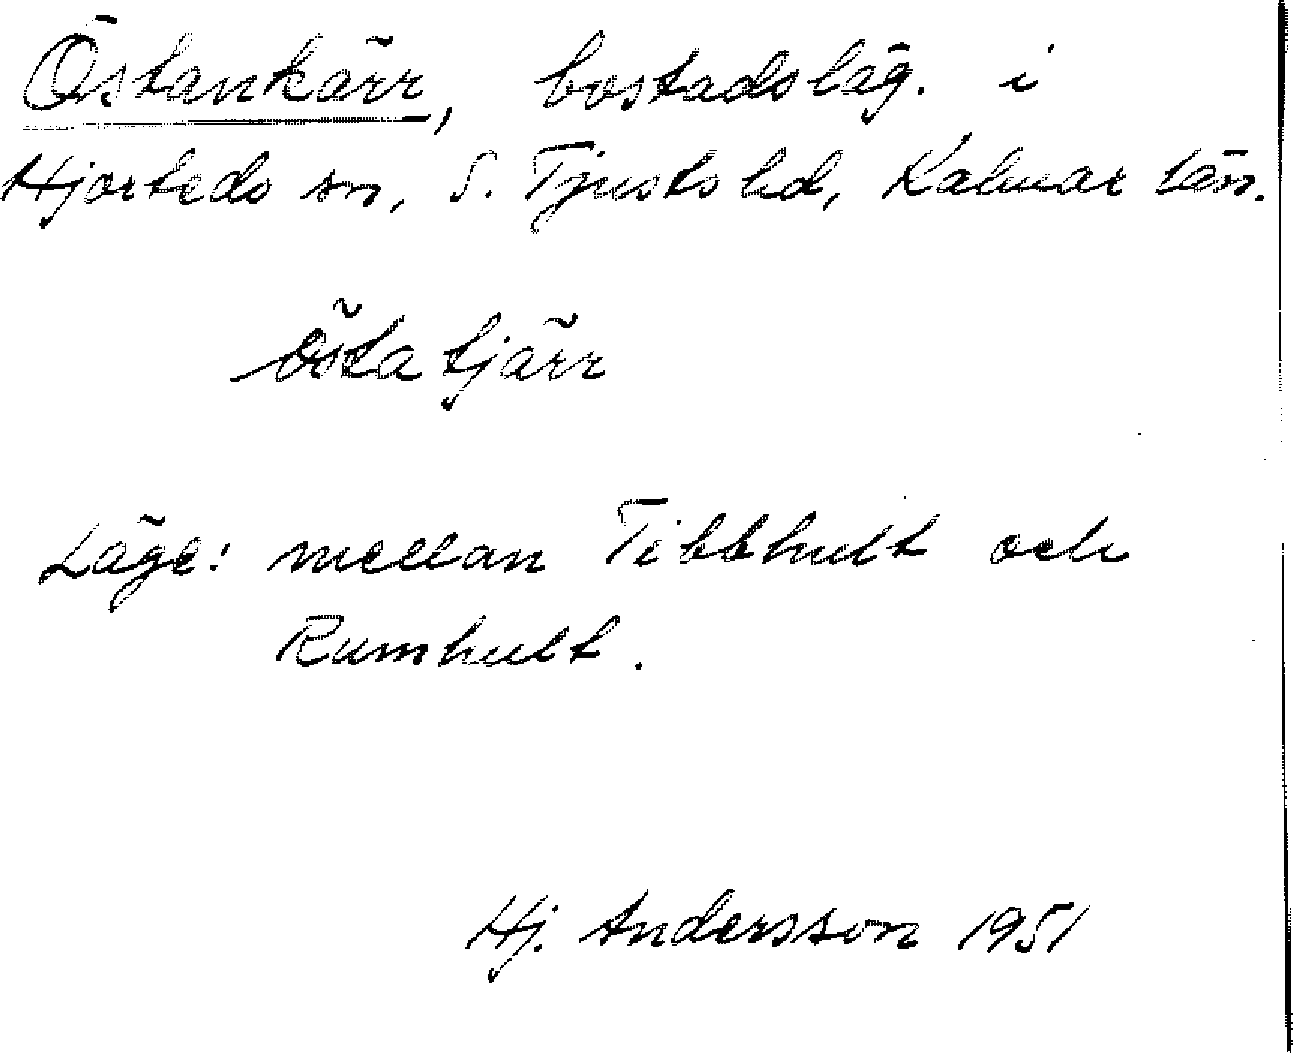 Östankärr, bostadsläg. i
Hjorteds sn, S. Tjusts hd, Kalmar län.
östa tjärr
Läge: mellan Tibbhult och
Rumhult.
Hj. Andersson 1951